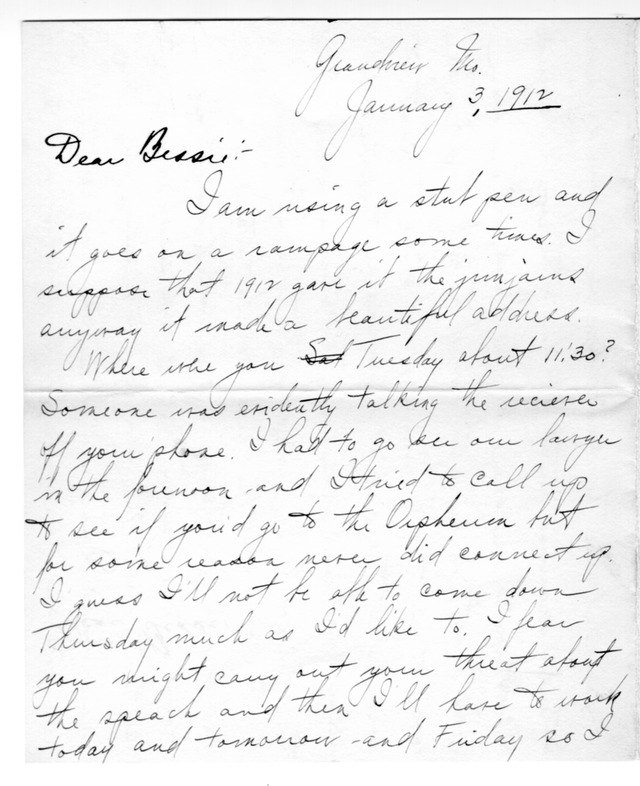 Grandview Mo.
January 3, 1912
Dear Bessie:-
I am using a stub pen and
it goes on a rampage some times. I
suppose that 1912 gave it the jimjams
anyway it made a beautiful address.
Where were you Sat Tuesday about 11:30?
Someone was evidently talking the reciever
off your phone. I had to go see our lawyer
in the forenoon and I tried to call up
to see if you'd go to the Orpheum but
for some reason never did connect up.
I guess I'll not be able to come down
Thursday much as I'd like to. I fear
you might carry out your threat about
the speach and then I'll have to work
today and tomorrow and Friday so I